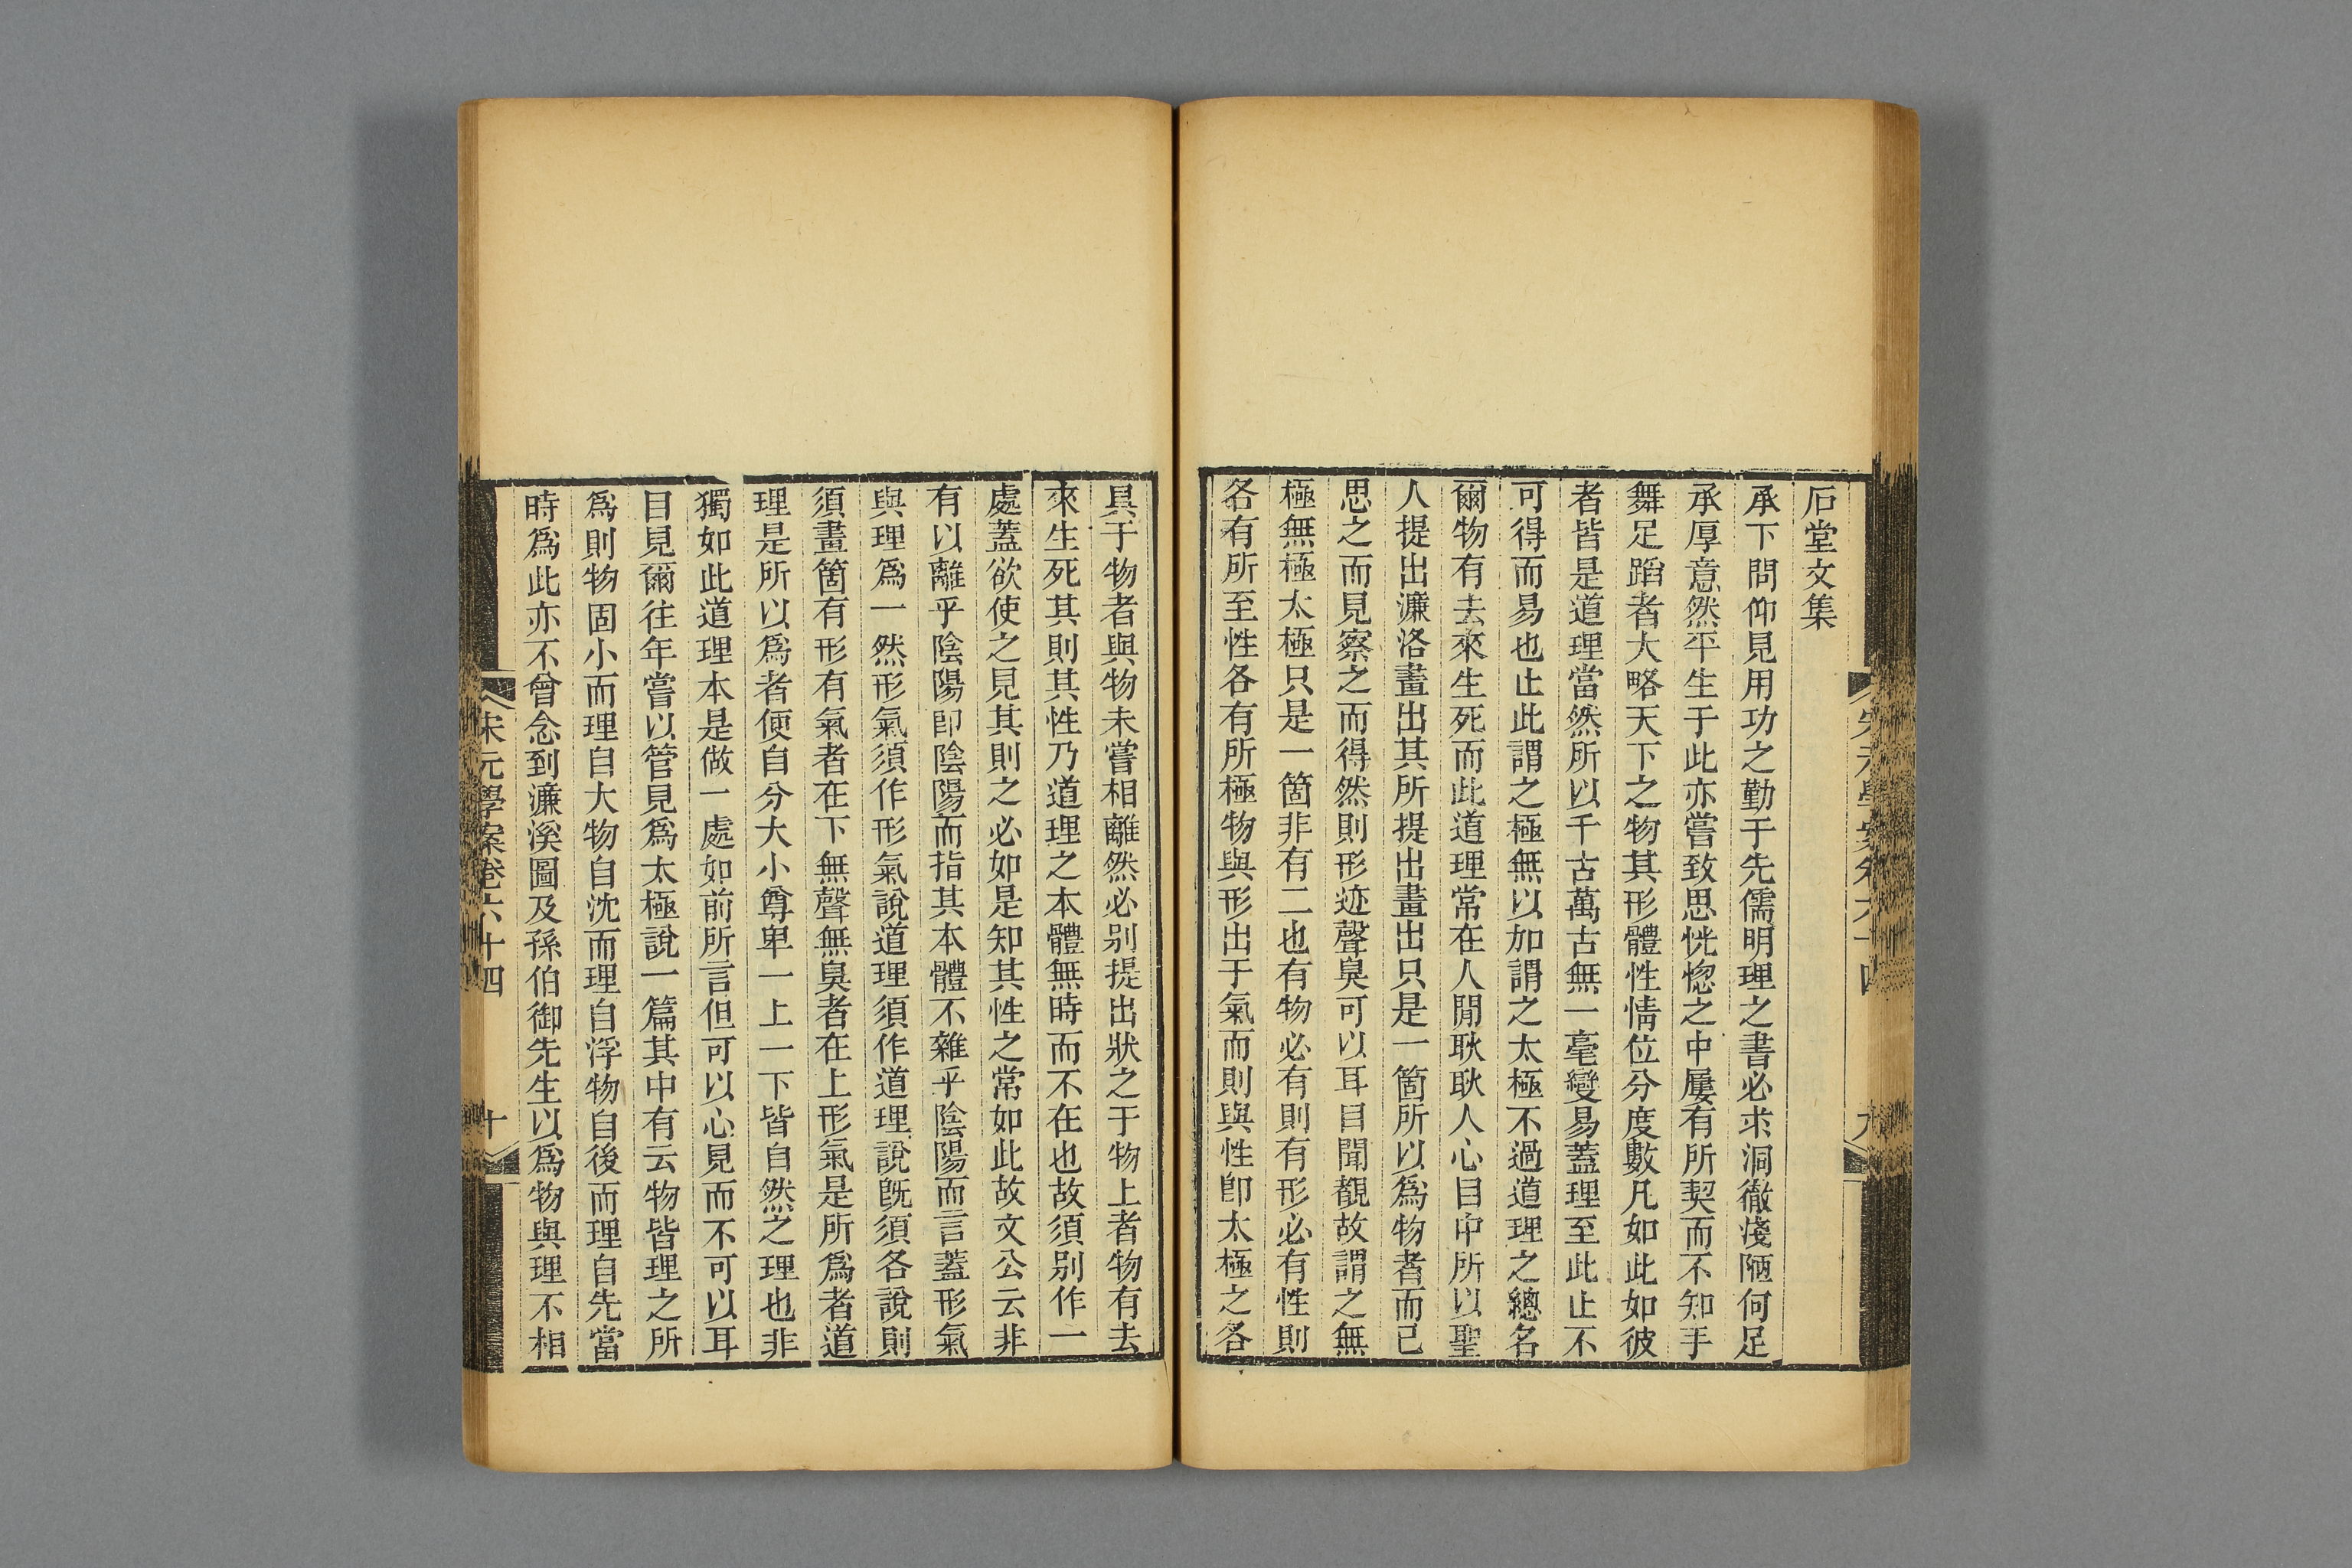 石堂文集
承下問仰見用功之勤于先儒明理之書必求洞徹淺陋何足
承厚意然平生于此亦嘗致思恍惚之中屢有所契而不知手
舞足蹈者大略天下之物其形體性情位分度數凡如此如彼
者皆是道理當然所以千古萬古無一毫變易蓋理至此止不
可得而易也止此謂之極無以加謂之太極不過道理之總名
爾物有去來生死而此道理常在人閒耿耿人心目中所以聖
人提出濂洛畫出其所提出畫出只是一箇所以爲物者而已
思之而見察之而得然則形迹聲臭可以耳目聞覩故謂之無
極無極太極只是一箇非有二也有物必有則有形必有性則
各有所至性各有所極物與形出于氣而則與性卽太極之各
具于物者與物未嘗相離然必别提出狀之于物上者物有去
來生死其則其性乃道理之本體無時而不在也故須别作一
處蓋欲使之見其則之必如是知其性之常如此故文公云非
有以離乎陰陽卽陰陽而指其本體不雜乎陰陽而言蓋形氣
與理爲一然形氣須作形氣說道理須作道理說旣須各說則
須畫箇有形有氣者在下無聲無臭者在上形氣是所爲者道
理是所以爲者便自分大小尊卑一上一下皆自然之理也非
獨如此道理本是做一處如前所言但可以心見而不可以耳
目見爾往年嘗以管見爲太極說一篇其中有云物皆理之所
爲則物固小而理自大物自沈而理自浮物自後而理自先當
時爲此亦不曾念到濂溪圖及孫伯御先生以爲物與理不相
宋元學案卷六十四
十